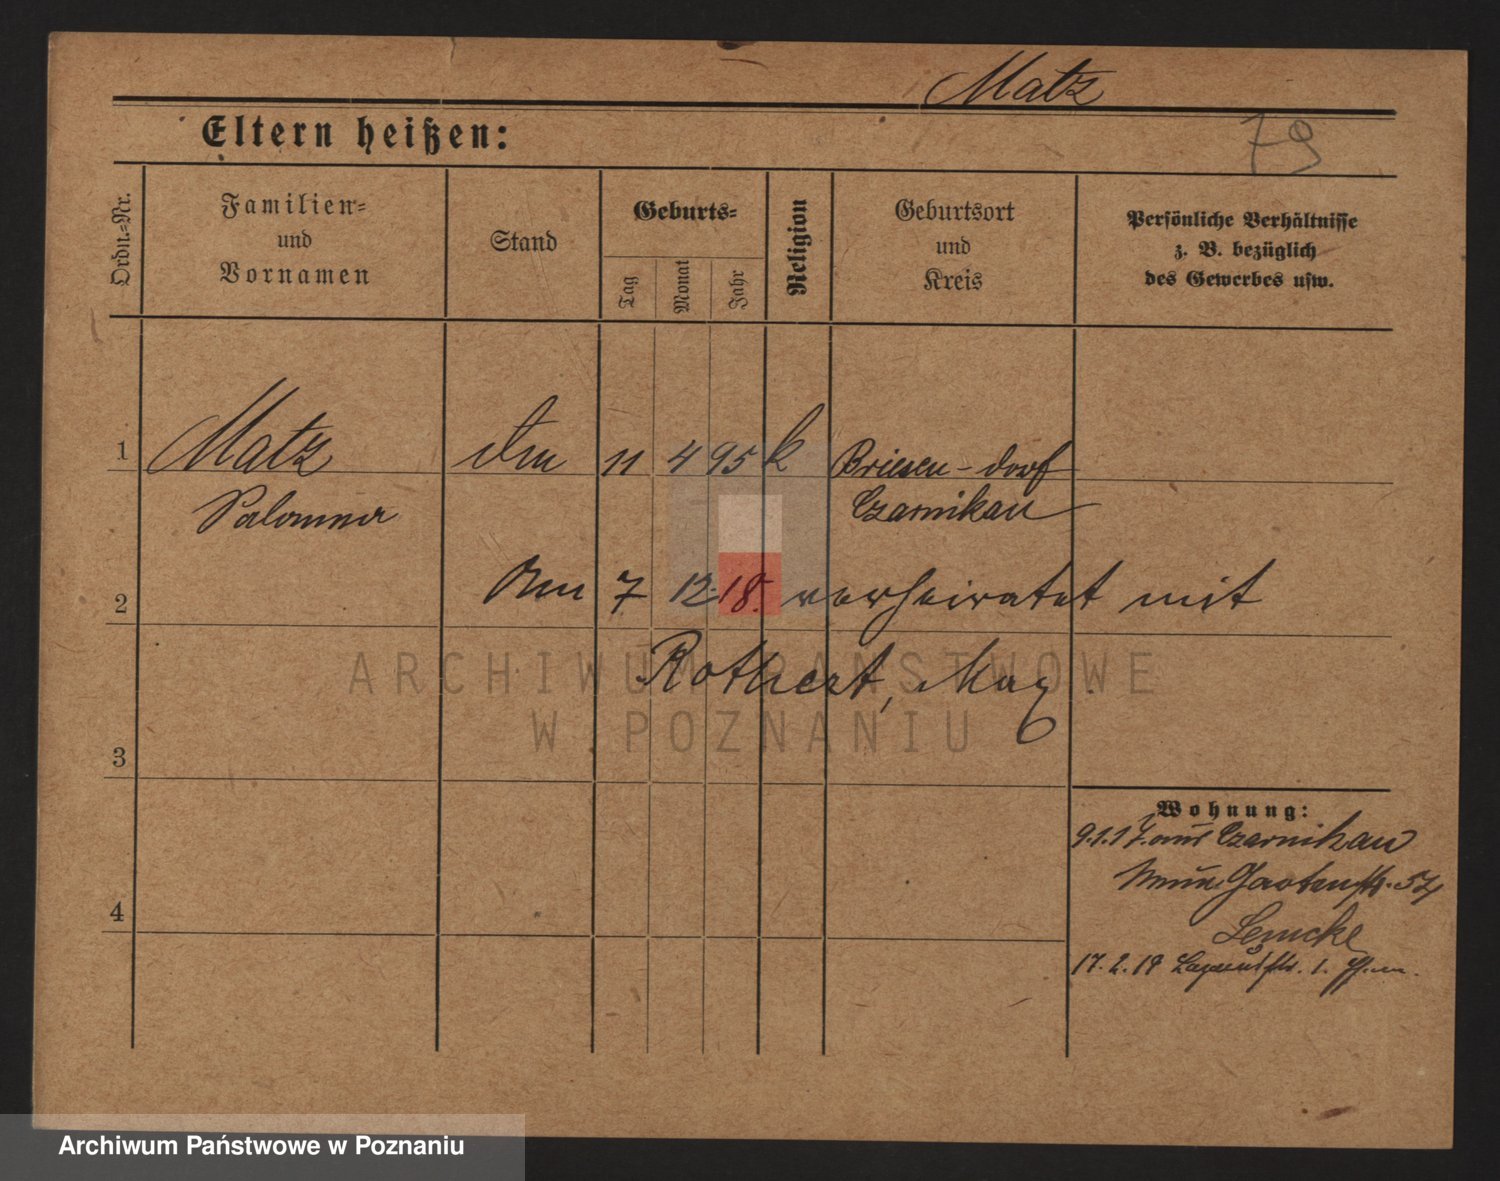 Matz
Eltern heißen:
79
Ordn.=Nr.
Familien=
und
Vornamen
Stand
Geburts=
Tag
Monat
Jahr
Religion
Geburtsort
und
Kreis
Persönliche Verhältnisse
z. B. bezüglich
des Gewerbes usw.
1 Matz 11 4 95 k Briesen-dorf
Salomea Czarnikau
2 7 12. 18. verheiratet mit
Rothert, Max
3
Wohnung:
9.1.17. aus Czarnikau
Gartenstr.
4
Lemcke
17. 2. 18 1.
ARCHIWUM PAŃSTWOWE
W POZNANIU
Archiwum Państwowe w Poznaniu